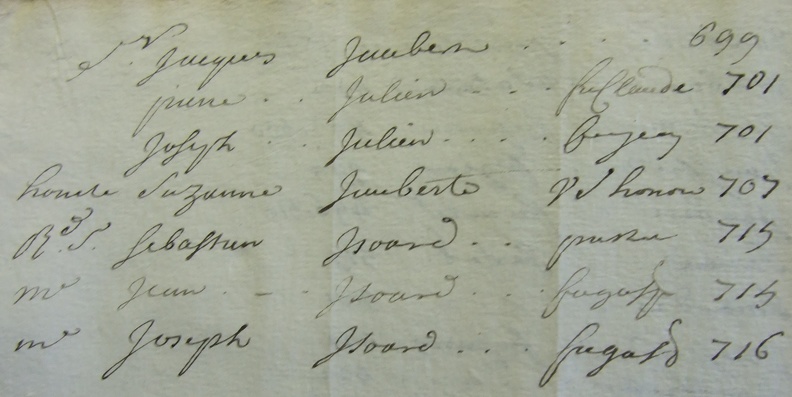 Sr Jacques Jaubert . . . . 699
pierre . . Julien . . . fu Claude 701
Joseph . . Julien . . . . 701
honête Suzanne Jauberte Ve d honoré 707
Rd Sr Sebastien Isoard . . . prestre 715
me Jean . - . Isoard . . . 715
me Joseph Isoard . . . 716